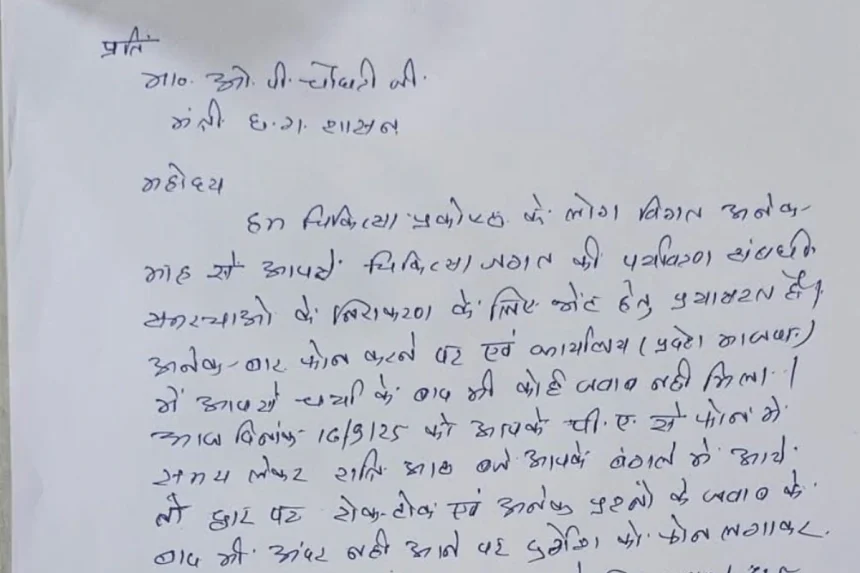 प्रति
मा०. ओ. पी. चौधरी जी.
मंत्री छ. ग. शासन
महोदय
हम चिकित्सा प्रकोष्ठ के लोग विगत अनेक-
माह से आपसे चिकित्सा जगत की पर्यावरण संबंधी
समस्याओं के निराकरण के लिए भेंट हेतु प्रयासरत हैं।
अनेक-बार फोन करने पर एवं कार्यालय (प्रदेश भाजपा)
में आपसे चर्चा के बाद भी कोई जवाब नही मिला।
आज दिनांक- 16/9/25 को आपके पी. ए. से फोन मे
समय लेकर रात्रि आठ बजे आपके बंगले मे आये
तो द्वार पर रोक-टोक एवं अनेक प्रश्नो के जवाब के
बाद भी अंदर नही आने पर को फोन लगाकर.